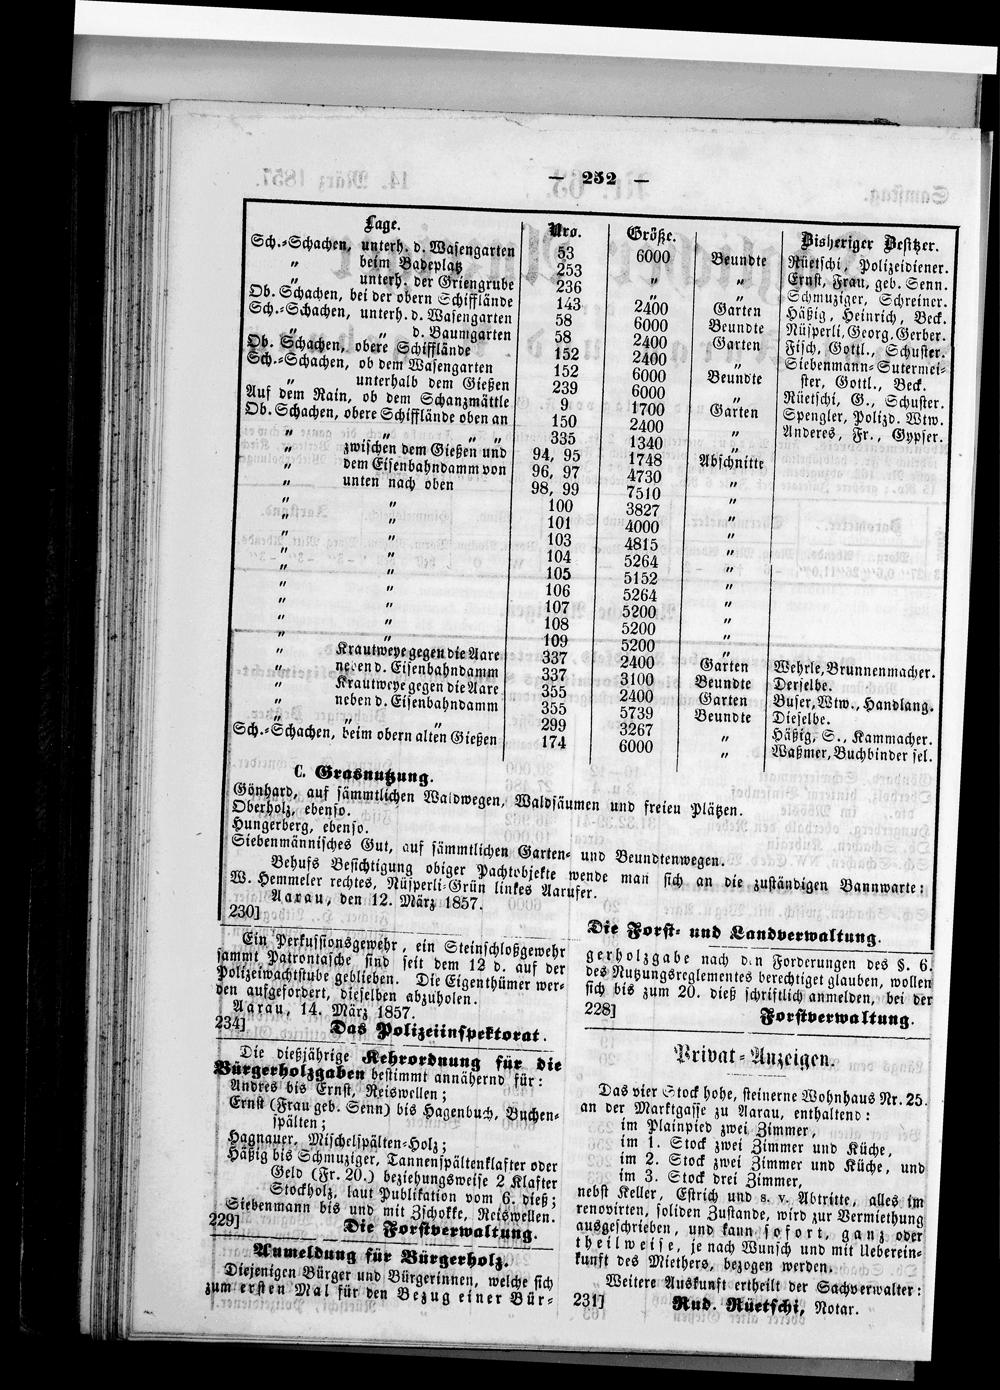 — 252 —
Lage. Nro. Größe. Bisheriger Besitzer.
Sch.=Schachen, unterh. d. Wasengarten 53 6000 Beundte Rüetschi, Polizeidiener.
„ beim Badeplatz 253 „ „ Ernst, Frau, geb. Senn.
„ unterh. der Griengrube 236 „ „ Schmuziger, Schreiner.
Ob. Schachen, bei der obern Schifflände 143 2400 Garten Häßig, Heinrich, Beck.
Sch.=Schachen, unterh. d. Wasengarten 58 6000 Beundte Nüsperli, Georg, Gerber.
„ „ d. Baumgarten 58 2400 Garten Fisch, Gottl., Schuster.
Ob. Schachen, obere Schifflände 152 2400 „ Siebenmann=Sutermei=
Sch.=Schachen, ob dem Wasengarten 152 6000 Beundte ster, Gottl., Beck.
„ unterhalb dem Gießen 239 6000 „ Rüetschi, G., Schuster.
Auf dem Rain, ob dem Schanzmättle 9 1700 Garten Spengler, Polizd. Wtw.
Ob. Schachen, obere Schifflände oben an 150 2400 „ Anderes, Fr., Gypser.
„ „ „ „ 335 1340 „
„ zwischen dem Gießen und 94, 95 1748 Abschnitte
„ dem Eisenbahndamm von 96, 97 4730 „
„ unten nach oben 98, 99 7510 „
„ „ 100 3827 „
„ „ 101 4000 „
„ „ 103 4815 „
„ „ 104 5264 „
„ „ 105 5152 „
„ „ 106 5264 „
„ „ 107 5200 „
„ „ 108 5200 „
„ „ 109 5200 „
„ Krautweye gegen die Aare 337 2400 Garten Wehrle, Brunnenmacher.
„ neben d. Eisenbahndamm 337 3100 Beundte Derselbe.
„ Krautweye gegen die Aare 355 2400 Garten Buser, Wtw., Handlang.
„ neben d. Eisenbahndamm 355 5739 Beundte Dieselbe.
„ „ „ 299 3267 „ Häßig, S., Kammacher.
Sch.=Schachen, beim obern alten Gießen 174 6000 „ Waßmer, Buchbinder sel.
C. Grasnutzung.
Gönhard, auf sämmtlichen Waldwegen, Waldsäumen und freien Plätzen.
Oberholz, ebenso.
Hungerberg, ebenso.
Siebenmännisches Gut, auf sämmtlichen Garten= und Beundtenwegen.
Behufs Besichtigung obiger Pachtobjekte wende man sich an die zuständigen Bannwarte:
W. Hemmeler rechtes, Nüsperli=Grün linkes Aarufer.
Aarau, den 12. März 1857.
230] Die Forst= und Landverwaltung.
Ein Perkussionsgewehr, ein Steinschloßgewehr
sammt Patrontasche sind seit dem 12 d. auf der
Polizeiwachtstube geblieben. Die Eigenthümer wer=
den aufgefordert, dieselben abzuholen.
Aarau, 14. März 1857.
234] Das Polizeiinspektorat.
Die dießjährige Kehrordnung für die
Bürgerholzgaben bestimmt annähernd für:
Andres bis Ernst, Reiswellen;
Ernst (Frau geb. Senn) bis Hagenbuch, Buchen=
spälten;
Hagnauer, Mischelspälten=Holz;
Häßig bis Schmuziger, Tannenspältenklafter oder
Geld (Fr. 20.) beziehungsweise 2 Klafter
Stockholz, laut Publikation vom 6. dieß;
Siebenmann bis und mit Zschokke, Reiswellen.
229] Die Forstverwaltung.
Anmeldung für Bürgerholz.
Diejenigen Bürger und Bürgerinnen, welche sich
zum ersten Mal für den Bezug einer Bür=
gerholzgabe nach den Forderungen des §. 6.
des Nutzungsreglementes berechtiget glauben, wollen
sich bis zum 20. dieß schriftlich anmelden, bei der
228] Forstverwaltung.
Privat=Anzeigen.
Das vier Stock hohe, steinerne Wohnhaus Nr. 25.
an der Marktgasse zu Aarau, enthaltend:
im Plainpied zwei Zimmer,
im 1. Stock zwei Zimmer und Küche,
im 2. Stock zwei Zimmer und Küche, und
im 3. Stock drei Zimmer,
nebst Keller, Estrich und s. v. Abtritte, alles im
renovirten, soliden Zustande, wird zur Vermiethung
ausgeschrieben, und kann sofort, ganz oder
theilweise, je nach Wunsch und mit Ueberein=
kunft des Miethers, bezogen werden.
Weitere Auskunft ertheilt der Sachverwalter:
231] Rud. Rüetschi, Notar.